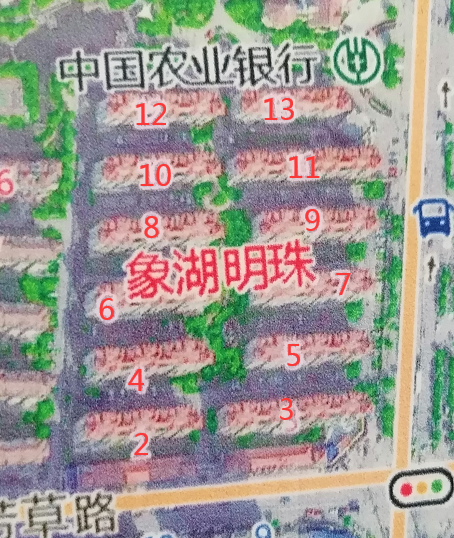 中国农业银行
12 13
10 11
6
8 9
象湖明珠
6 7
4 5
2 3
草路
9